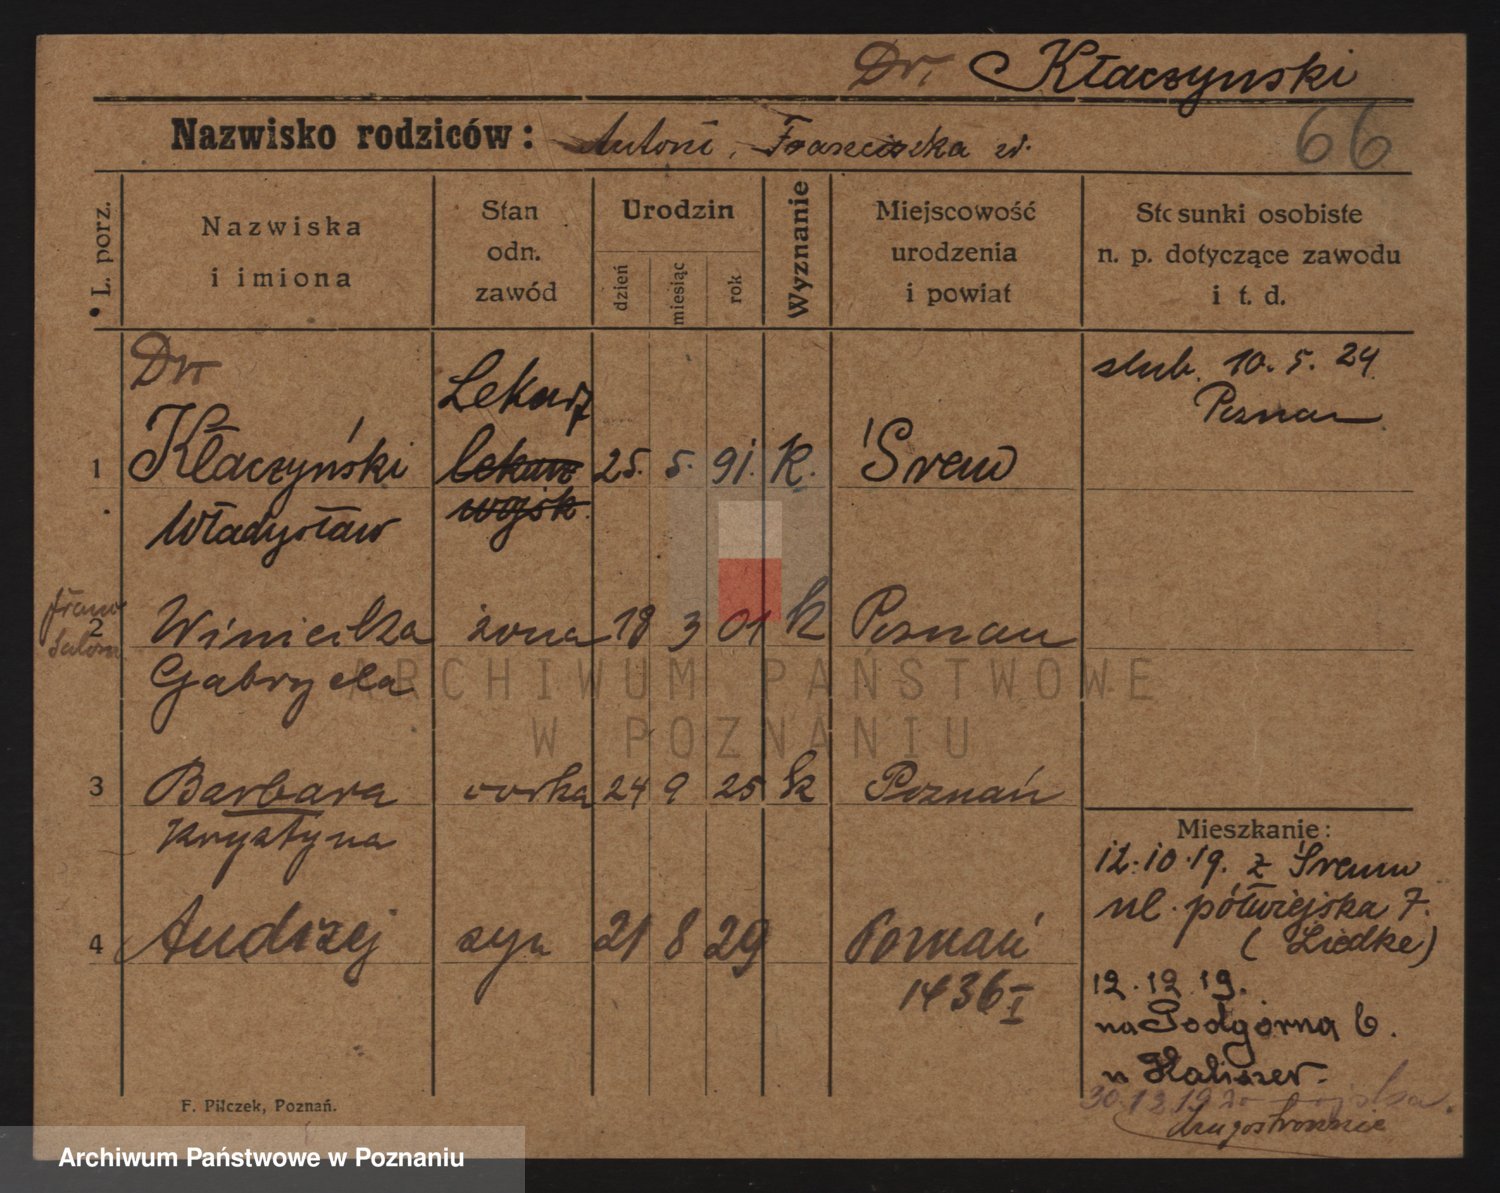 Dr. Kłaczynski
66
Nazwisko rodziców: Antoni, Franciszka z d.
L. porz.
Nazwiska i imiona
Stan odn. zawód
Urodzin
dzień
miesiąc
rok
Wyznanie
Miejscowość urodzenia i powiat
Stosunki osobiste n. p. dotyczące zawodu i t. d.
Dr
Lekarz
ślub. 10. 5. 24
Poznan
1 Kłaczyński lekarz 25. 5. 91. k. Śrem
Władysław wojsk.
2 Winiecka żona 18 3 01 k Poznan
Gabryela
3 Barbara córka 24 9 25 k Poznań
Krystyna
4 Andrzej syn 21 8 29 Poznań
1436 I
Mieszkanie:
12.10.19. z Śremu
ul. półwiejska 7.
(Liedke)
12.12.19.
na Podgórna 6.
u Kaliszer.
30.12.1920
F. Pilczek, Poznań.
ARCHIWUM PAŃSTWOWE
W POZNANIU
Archiwum Państwowe w Poznaniu